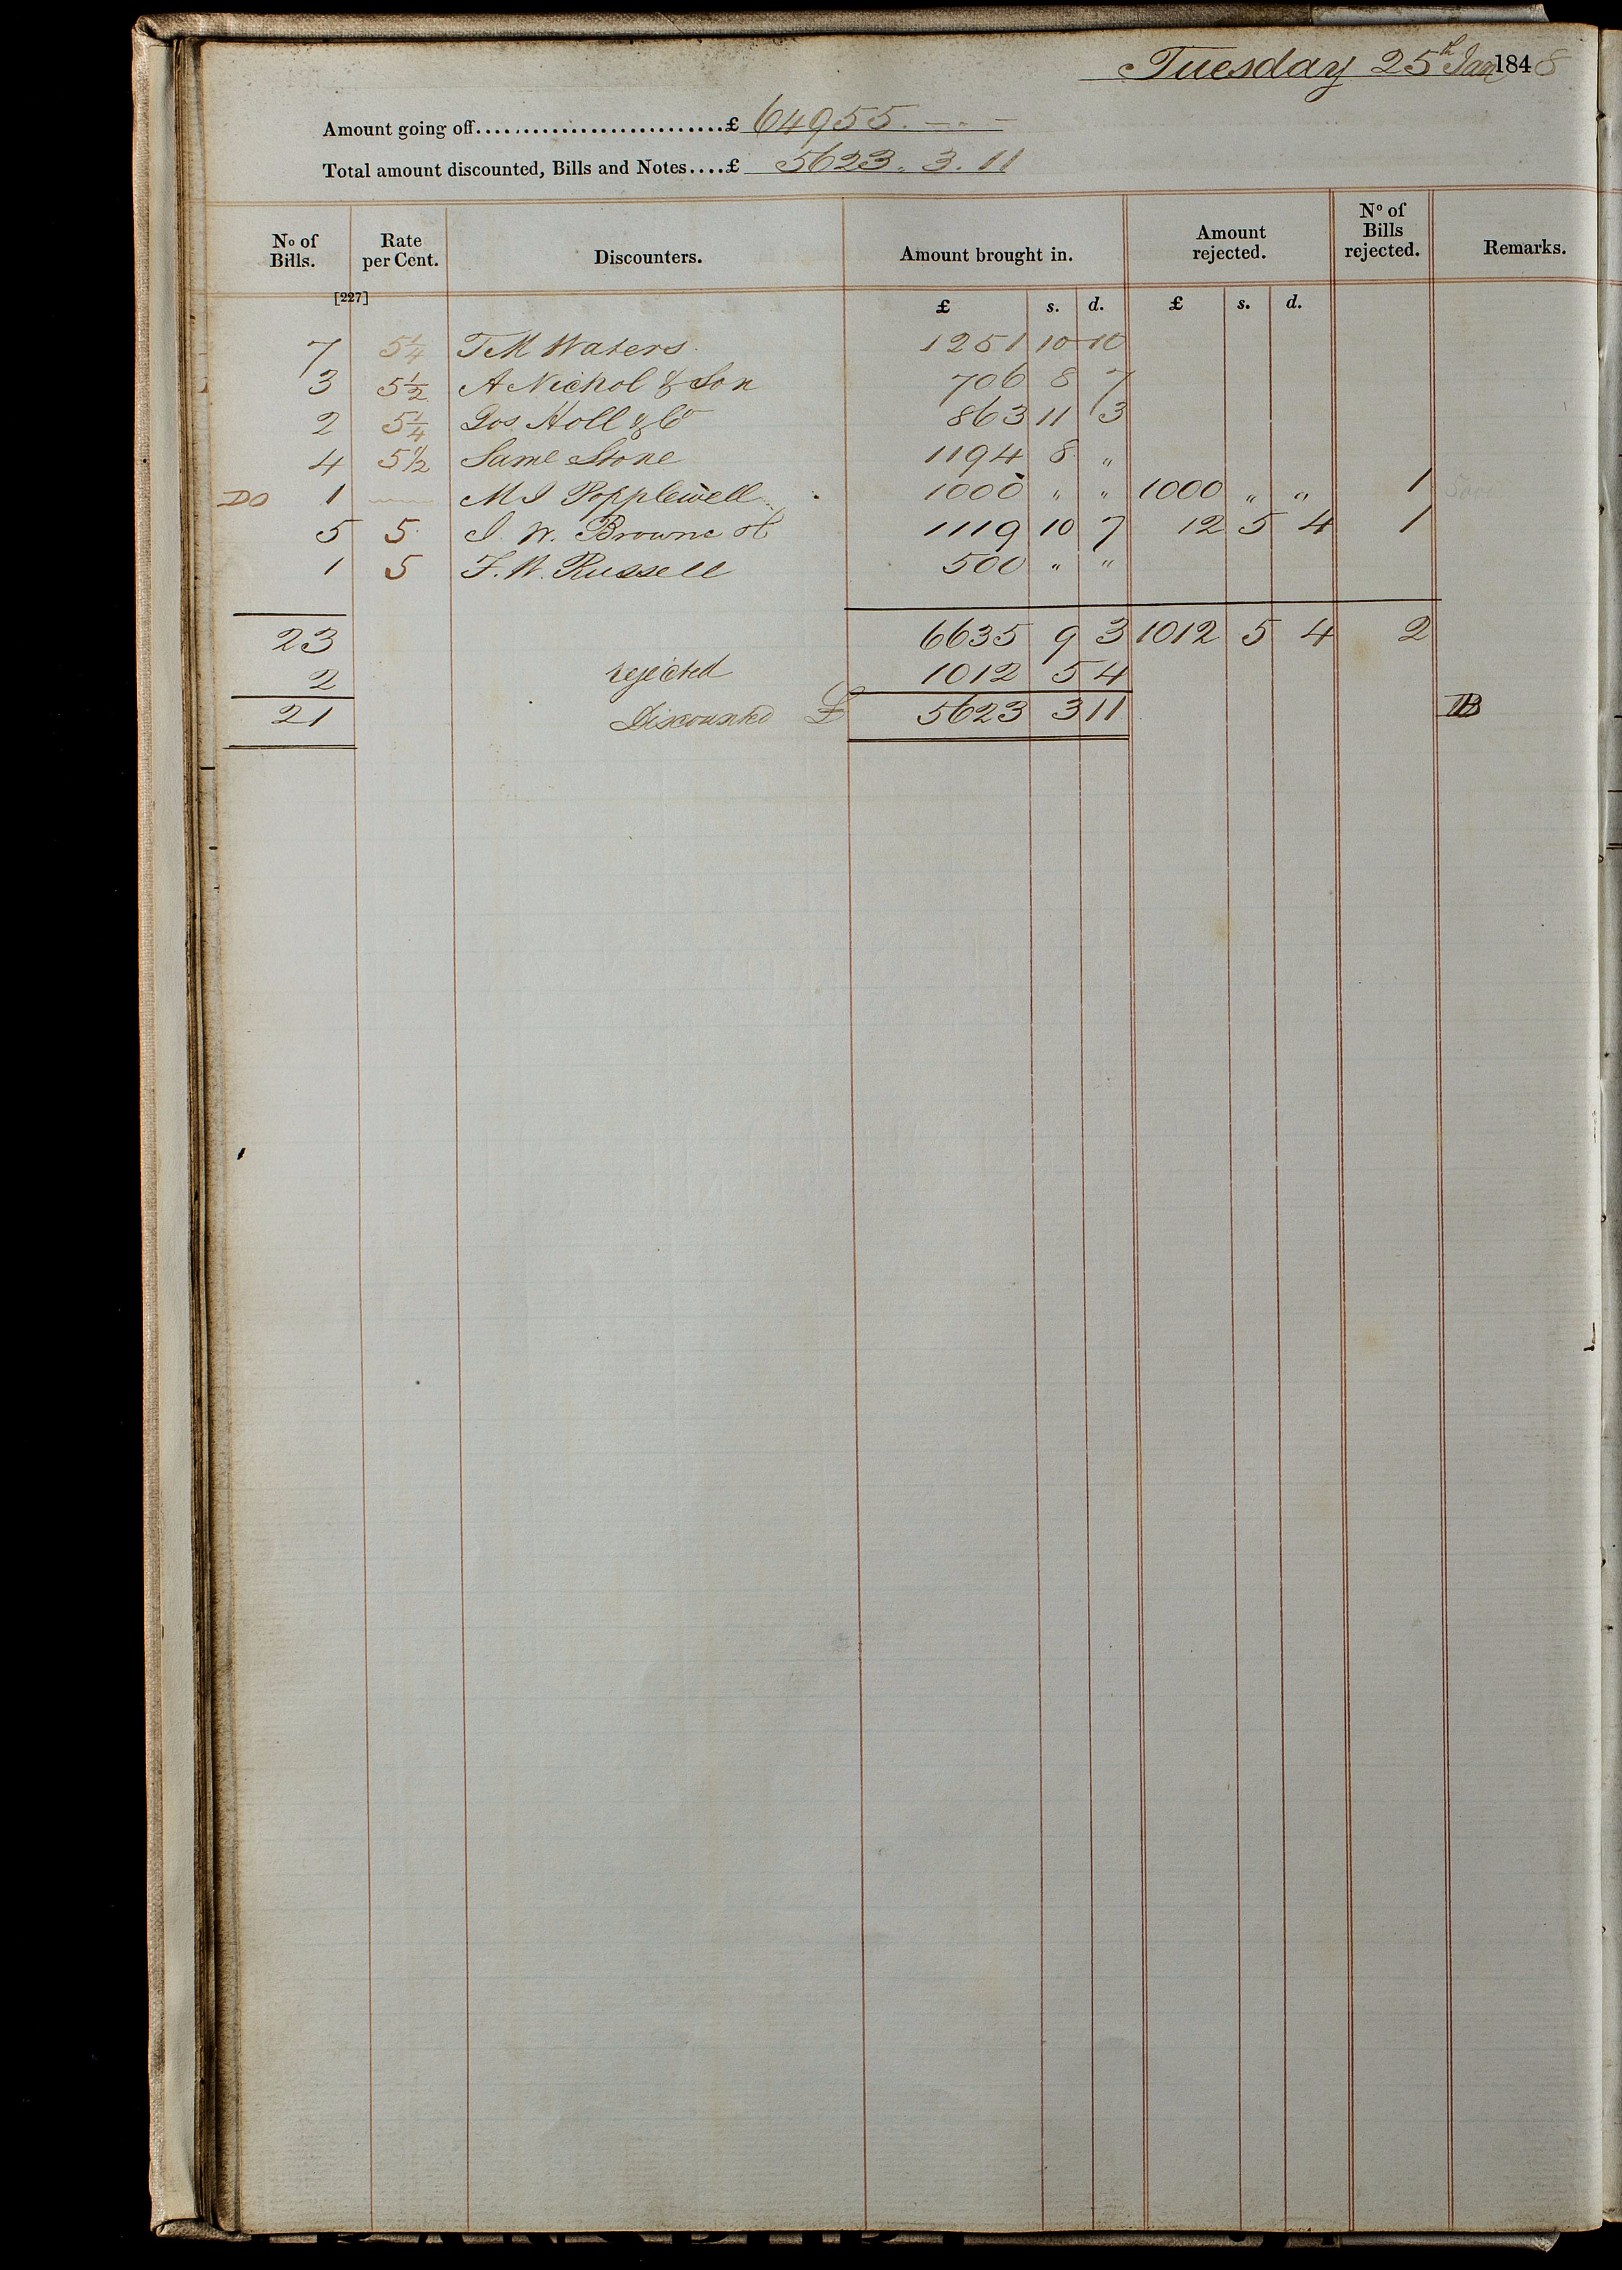 Tuesday 25th Jan 1848
Amount going off...........................£ 64955. — . —
Total amount discounted, Bills and Notes....£ 5623. 3. 11
No of Bills. Rate per Cent. Discounters. Amount brought in. Amount rejected. No of Bills rejected. Remarks.
[227] £ s. d. £ s. d.
7 5¼ T M Waters 1251 10 10
3 5½ A Nichol & Son 706 8 7
2 5¼ Jos Holl & Co 863 11 3
4 5½ Same Stone 1194 8 "
DO 1 M J Popplewell 1000 " " 1000 " " 1
5 5 J. W. Browne 1119 10 7 12 5 4 1
1 5 F. W. Russell 500 " "
23 6635 9 3 1012 5 4 2
2 rejected 1012 5 4
21 Discounted £ 5623 3 11